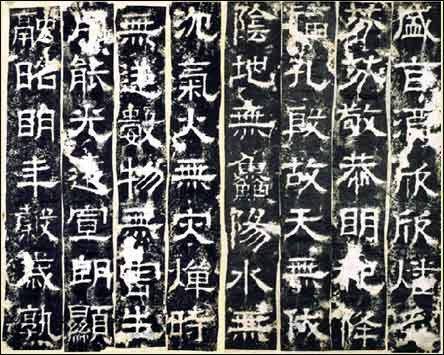 盛旨酒欣欣燔炙
芬芬敬恭明祀降
福孔殷故天無伏
陰地無鱻陽水無
沈氣火無災燀時
無逆數物無害生
用能光遠宣朗顯
融昭明年穀歲孰